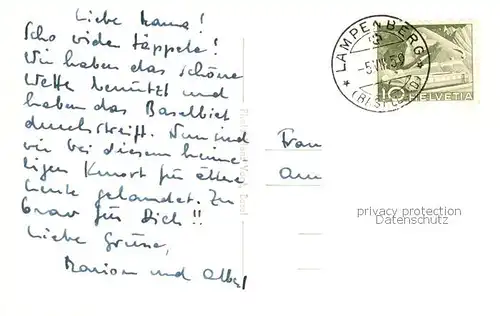 Liebe Mama!
Scho wider läppele!
Wir haben das schöne
Wetter benützt und
haben das Baselbiet
durchstreift. Nun sind
wir bei diesem heime-
ligen Kurort für ältere
heute gelandet. Zu
brav für Dich!!
Liebe Grüsse,
Marion und
LAMPENBERG
10
HELVETIA
Frau
am
privacy protection
Datenschutz